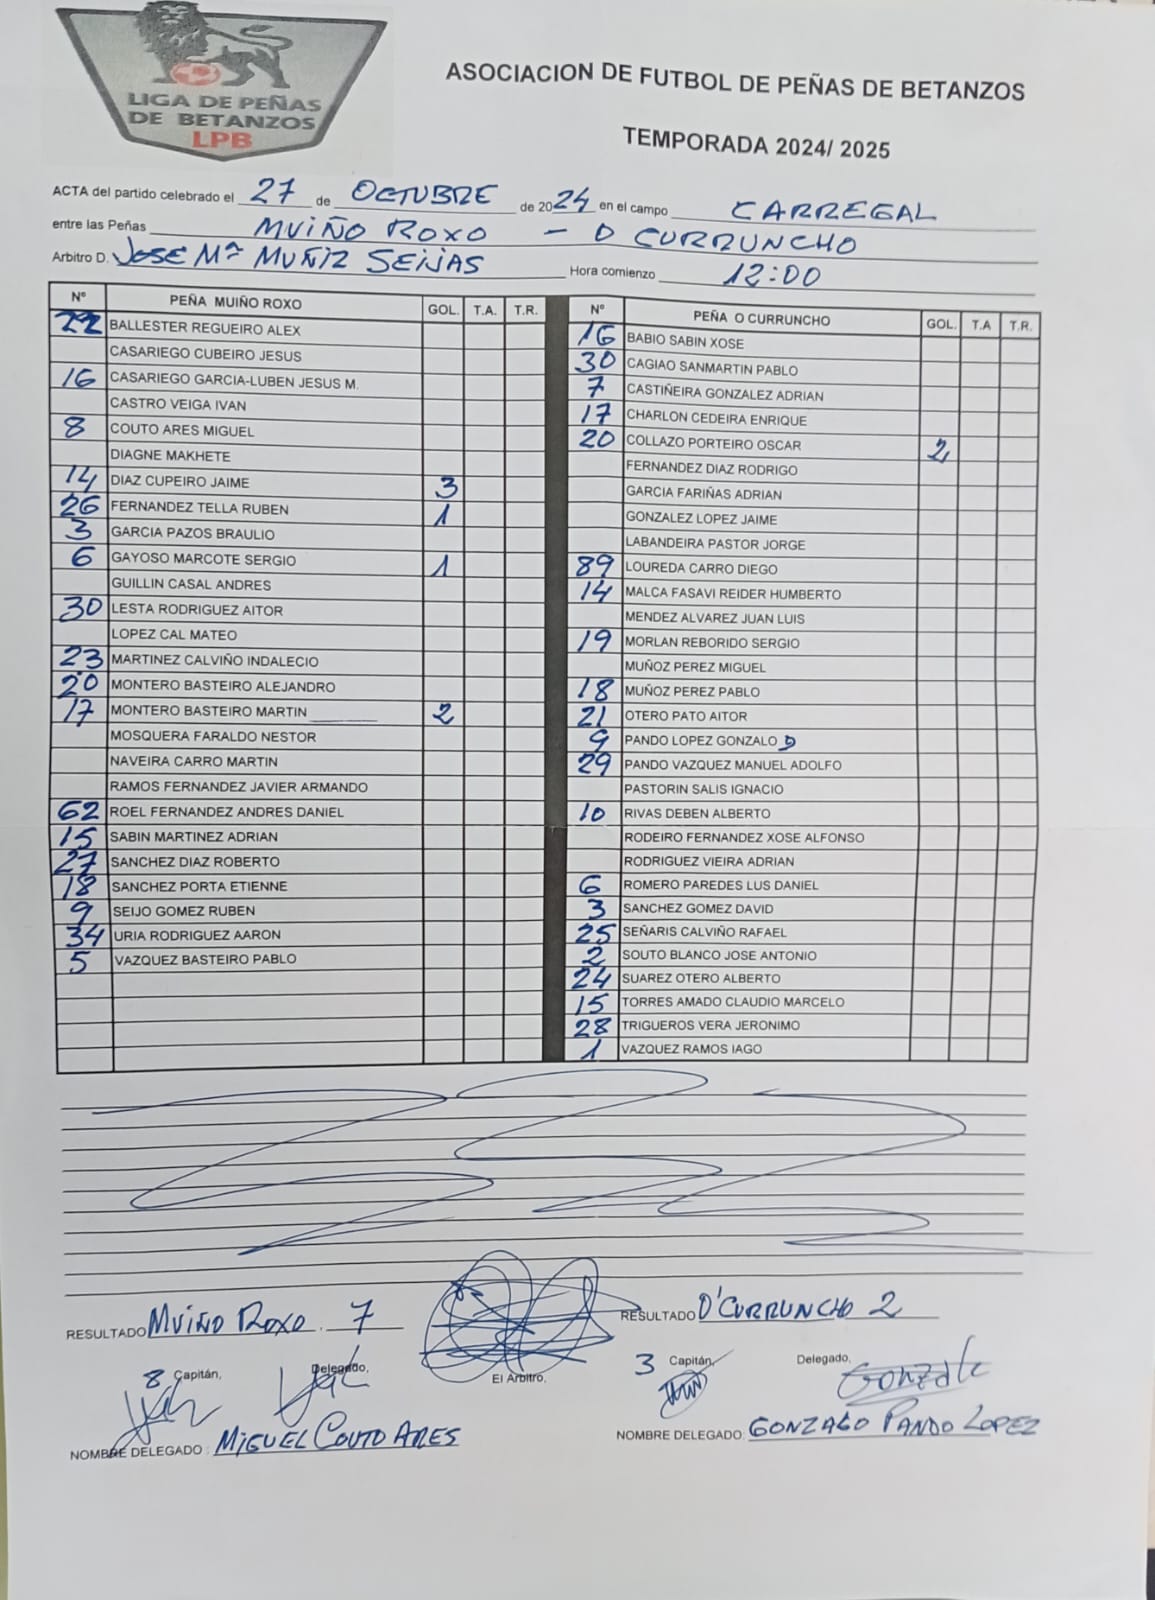 LIGA DE PEÑAS
DE BETANZOS
LPB
ASOCIACION DE FUTBOL DE PEÑAS DE BETANZOS
TEMPORADA 2024/ 2025
ACTA del partido celebrado el 27 de OCTUBRE de 2024 en el campo CARREGAL
entre las Peñas MUIÑO ROXO - O CURRUNCHO
Arbitro D. JOSE Mª MUÑIZ SEIJAS Hora comienzo 12:00
Nº PEÑA MUIÑO ROXO GOL. T.A. T.R. Nº PEÑA O CURRUNCHO GOL. T.A T.R.
22 BALLESTER REGUEIRO ALEX 16 BABIO SABIN XOSE
CASARIEGO CUBEIRO JESUS 30 CAGIAO SANMARTIN PABLO
16 CASARIEGO GARCIA-LUBEN JESUS M. 7 CASTIÑEIRA GONZALEZ ADRIAN
CASTRO VEIGA IVAN 17 CHARLON CEDEIRA ENRIQUE
8 COUTO ARES MIGUEL 20 COLLAZO PORTEIRO OSCAR 2
DIAGNE MAKHETE FERNANDEZ DIAZ RODRIGO
14 DIAZ CUPEIRO JAIME 3 GARCIA FARIÑAS ADRIAN
26 FERNANDEZ TELLA RUBEN 1 GONZALEZ LOPEZ JAIME
3 GARCIA PAZOS BRAULIO LABANDEIRA PASTOR JORGE
6 GAYOSO MARCOTE SERGIO 1 89 LOUREDA CARRO DIEGO
GUILLIN CASAL ANDRES 14 MALCA FASAVI REIDER HUMBERTO
30 LESTA RODRIGUEZ AITOR MENDEZ ALVAREZ JUAN LUIS
LOPEZ CAL MATEO 19 MORLAN REBORIDO SERGIO
23 MARTINEZ CALVIÑO INDALECIO MUÑOZ PEREZ MIGUEL
20 MONTERO BASTEIRO ALEJANDRO 18 MUÑOZ PEREZ PABLO
17 MONTERO BASTEIRO MARTIN 2 21 OTERO PATO AITOR
MOSQUERA FARALDO NESTOR 9 PANDO LOPEZ GONZALO D
NAVEIRA CARRO MARTIN 29 PANDO VAZQUEZ MANUEL ADOLFO
RAMOS FERNANDEZ JAVIER ARMANDO PASTORIN SALIS IGNACIO
62 ROEL FERNANDEZ ANDRES DANIEL 10 RIVAS DEBEN ALBERTO
15 SABIN MARTINEZ ADRIAN RODEIRO FERNANDEZ XOSE ALFONSO
27 SANCHEZ DIAZ ROBERTO RODRIGUEZ VIEIRA ADRIAN
18 SANCHEZ PORTA ETIENNE 6 ROMERO PAREDES LUS DANIEL
9 SEIJO GOMEZ RUBEN 3 SANCHEZ GOMEZ DAVID
34 URIA RODRIGUEZ AARON 25 SEÑARIS CALVIÑO RAFAEL
5 VAZQUEZ BASTEIRO PABLO 2 SOUTO BLANCO JOSE ANTONIO
24 SUAREZ OTERO ALBERTO
15 TORRES AMADO CLAUDIO MARCELO
28 TRIGUEROS VERA JERONIMO
1 VAZQUEZ RAMOS IAGO
RESULTADO MUIÑO ROXO . 7 RESULTADO O'CURRUNCHO 2
8 Capitán, Delegado, El Arbitro, 3 Capitán, Delegado,
NOMBRE DELEGADO : MIGUEL COUTO ARES NOMBRE DELEGADO: GONZALO PANDO LOPEZ